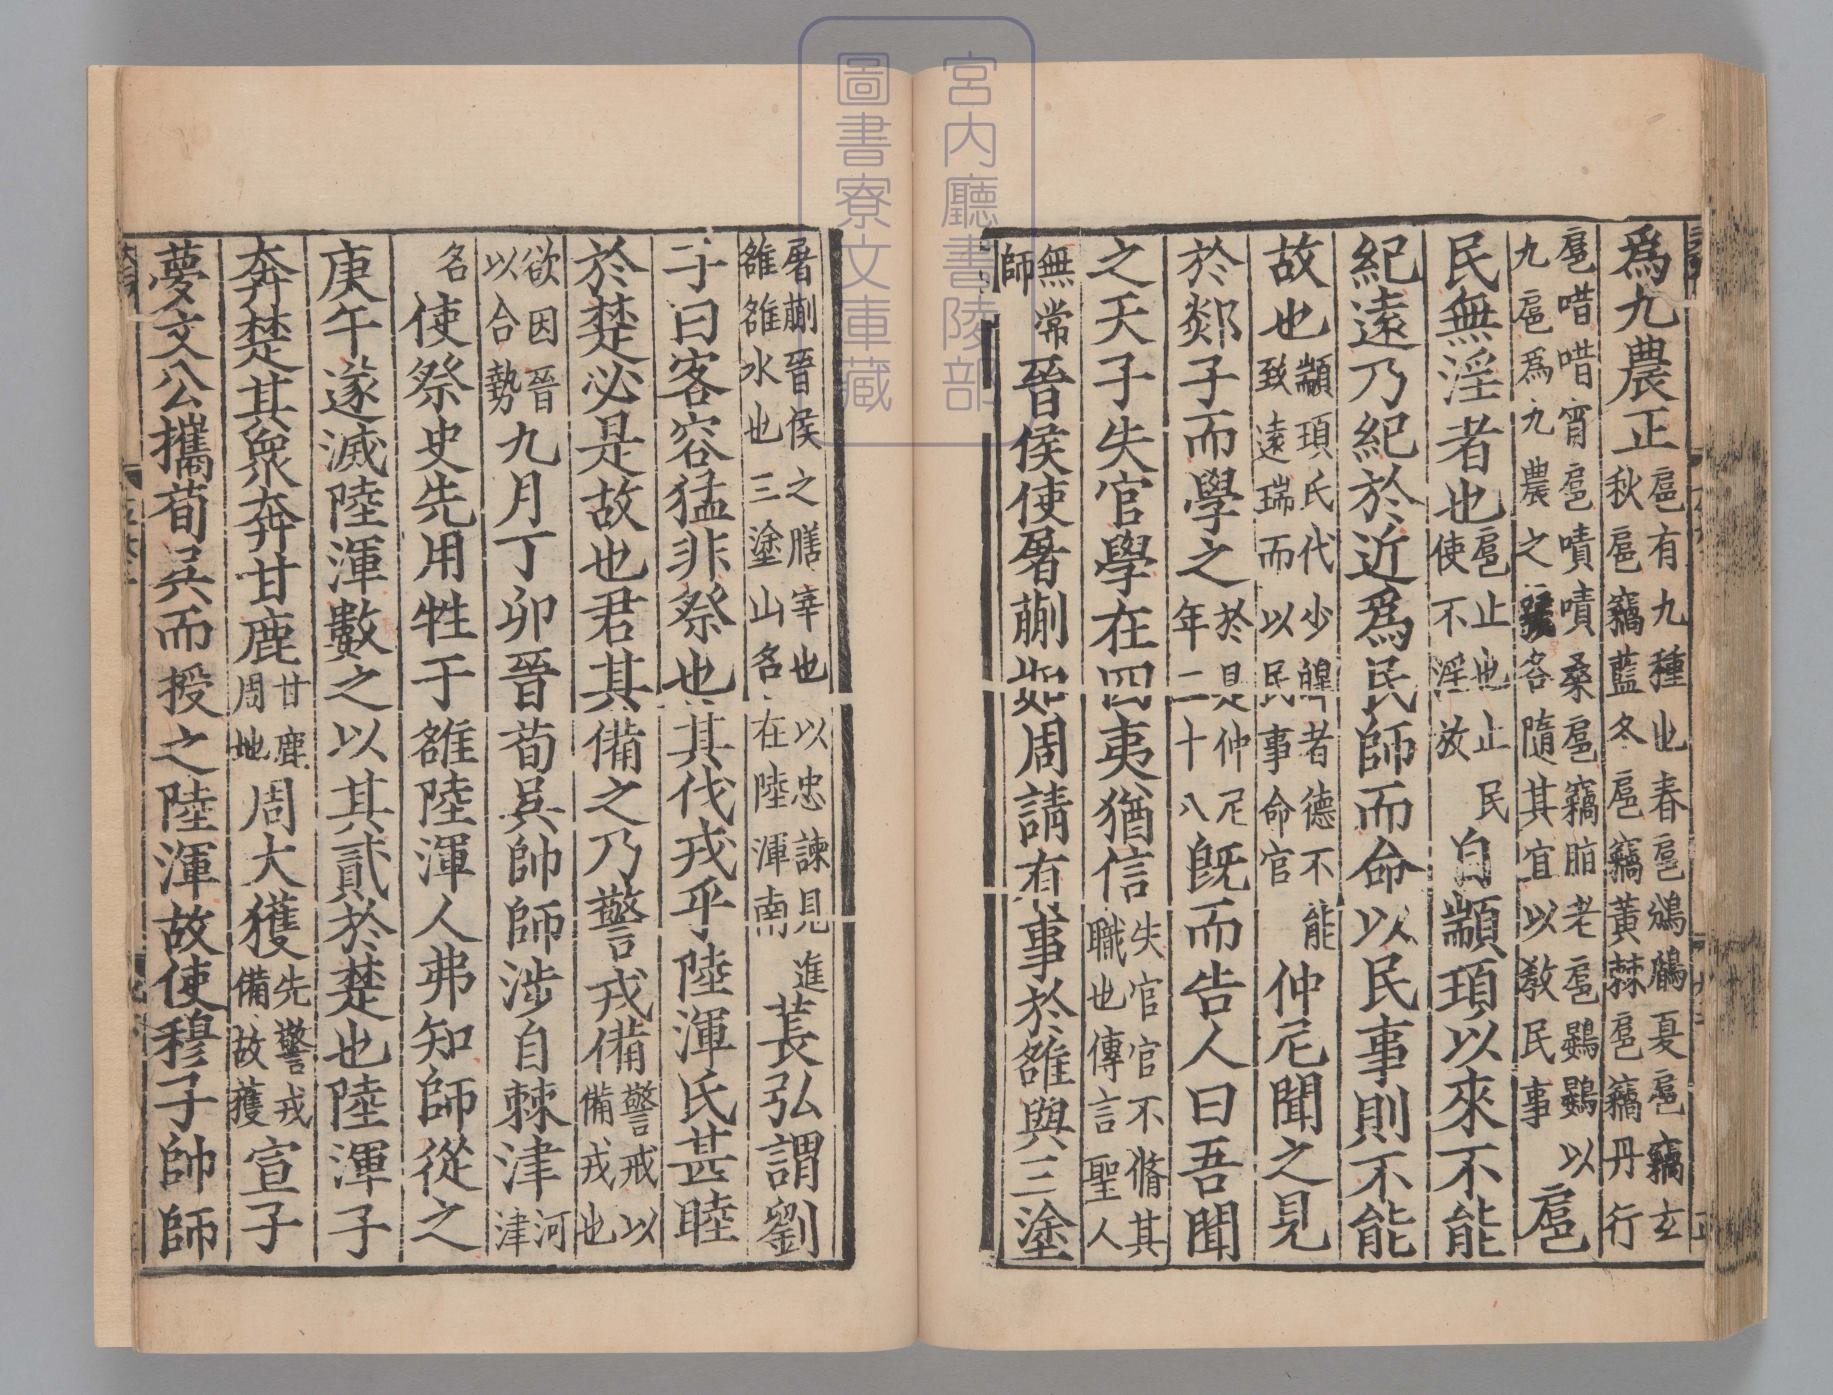 爲九農正扈有九種也春扈鳻鶞夏扈竊玄
秋扈竊藍冬扈竊黃棘扈竊丹行
扈唶唶宵扈嘖嘖桑扈竊脂老扈鷃鷃以
九扈爲九農之號各隨其宜以敎民事扈
民無淫者也扈止也止民
使不淫放自顓頊以來不能
紀遠乃紀於近爲民師而命以民事則不能
故也顓頊氏代少皞者德不能
致遠瑞而以民事命官仲尼聞之見
於郯子而學之於是仲尼
年二十八旣而告人曰吾聞
之天子失官學在四夷猶信失官官不脩其
職也傳言聖人
無常
師晉侯使屠蒯如周請有事於雒與三塗
屠蒯晉侯之膳宰也以忠諫見進
雒雒水也三塗山名在陸渾南萇弘謂劉
子曰客容猛非祭也其伐戎乎陸渾氏甚睦
於楚必是故也君其備之乃警戎備警戒以
備戎也
欲因晉
以合勢九月丁卯晉荀吳帥師涉自棘津河
津
名使祭史先用牲于雒陸渾人弗知師從之
庚午遂滅陸渾數之以其貳於楚也陸渾子
奔楚其衆奔甘鹿甘鹿
周地周大獲先警戎
備故獲宣子
夢文公攜荀吳而授之陸渾故使穆子帥師
宮内廳書陵部
圖書寮文庫藏